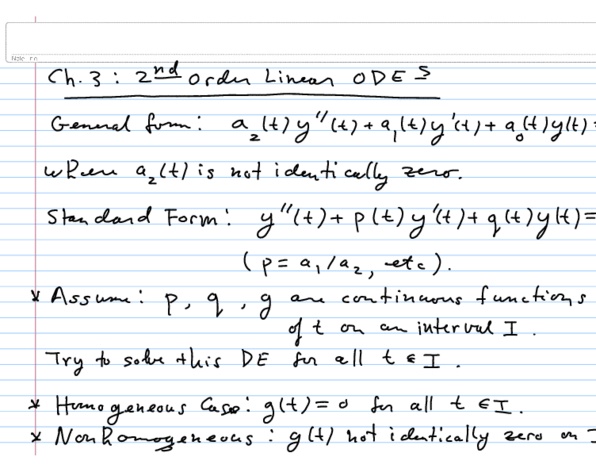 Ch. 3 : 2nd Order Linear ODES
General form: a₂(t) y''(t) + a₁(t) y'(t) + a₀(t) y(t) =
where a₂(t) is not identically zero.
Standard Form: y''(t) + p(t) y'(t) + q(t) y(t) =
( p = a₁ / a₂, etc ).
* Assume: p, q, g are continuous functions
of t on an interval I.
Try to solve this DE for all t ∈ I.
* Homogeneous Case: g(t) = 0 for all t ∈ I.
* NonHomogeneous : g(t) not identically zero on I